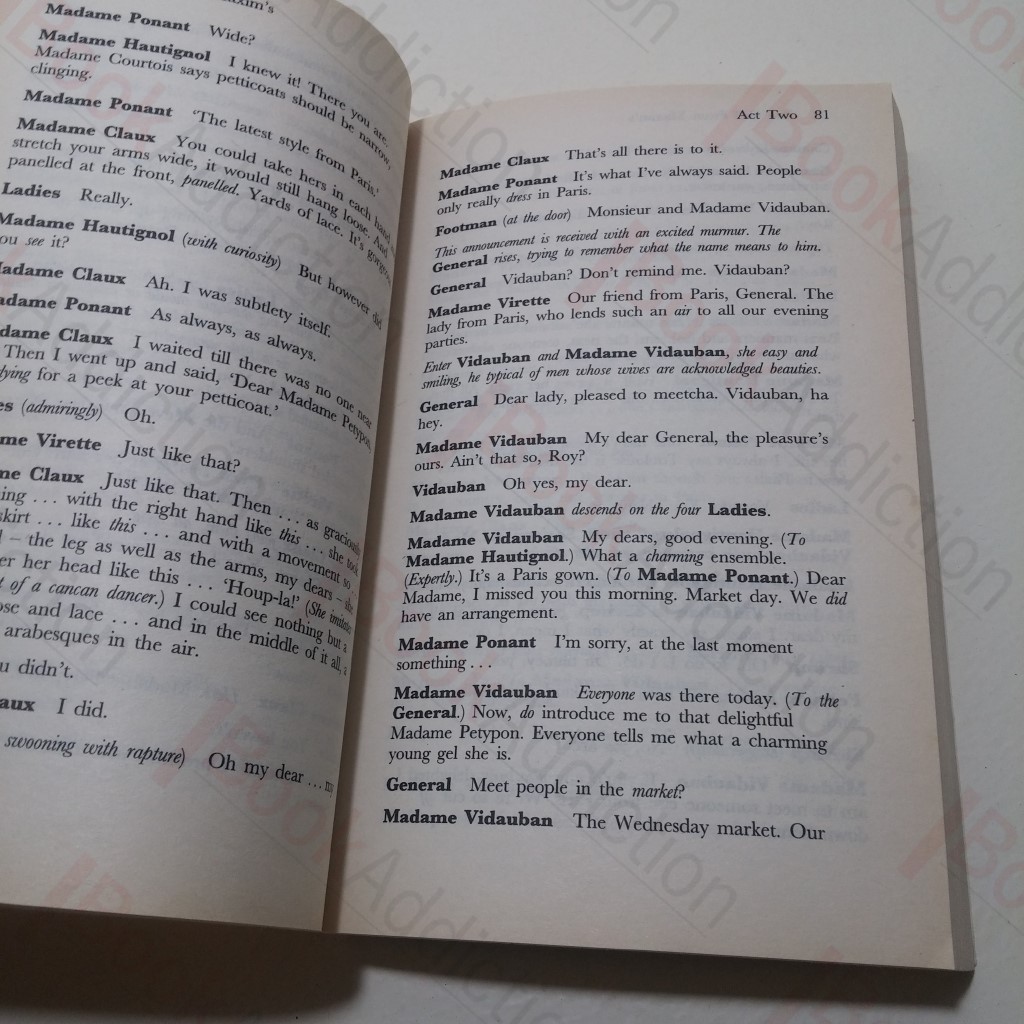 xim's
Madame Ponant Wide?
Madame Hautignol I knew it! There you are.
Madame Courtois says petticoats should be narrow,
clinging.
Madame Ponant 'The latest style from Paris.'
Madame Claux You could take hers in each hand
stretch your arms wide, it would still hang loose. And
panelled at the front, panelled. Yards of lace. It's gorgeous
Ladies Really.
Madame Hautignol (with curiosity) But however did
ou see it?
Madame Claux Ah. I was subtlety itself.
adame Ponant As always, as always.
dame Claux I waited till there was no one near
Then I went up and said, 'Dear Madame Petypon,
dying for a peek at your petticoat.'
es (admiringly) Oh.
me Virette Just like that?
me Claux Just like that. Then . . . as graciously
ing . . . with the right hand like this . . . she took
skirt . . . like this . . . and with a movement so
– the leg as well as the arms, my dears – she
er her head like this . . . 'Houp-la!' (She imitates
t of a cancan dancer.) I could see nothing but a
ose and lace . . . and in the middle of it all, a
arabesques in the air.
u didn't.
aux I did.
swooning with rapture) Oh my dear . . . my
Act Two 81
Madame Claux That's all there is to it.
Madame Ponant It's what I've always said. People
only really dress in Paris.
Footman (at the door) Monsieur and Madame Vidauban.
This announcement is received with an excited murmur. The
General rises, trying to remember what the name means to him.
General Vidauban? Don't remind me. Vidauban?
Madame Virette Our friend from Paris, General. The
lady from Paris, who lends such an air to all our evening
parties.
Enter Vidauban and Madame Vidauban, she easy and
smiling, he typical of men whose wives are acknowledged beauties.
General Dear lady, pleased to meetcha. Vidauban, ha
hey.
Madame Vidauban My dear General, the pleasure's
ours. Ain't that so, Roy?
Vidauban Oh yes, my dear.
Madame Vidauban descends on the four Ladies.
Madame Vidauban My dears, good evening. (To
Madame Hautignol.) What a charming ensemble.
(Expertly.) It's a Paris gown. (To Madame Ponant.) Dear
Madame, I missed you this morning. Market day. We did
have an arrangement.
Madame Ponant I'm sorry, at the last moment
something . . .
Madame Vidauban Everyone was there today. (To the
General.) Now, do introduce me to that delightful
Madame Petypon. Everyone tells me what a charming
young gel she is.
General Meet people in the market?
Madame Vidauban The Wednesday market. Our
Book Addiction